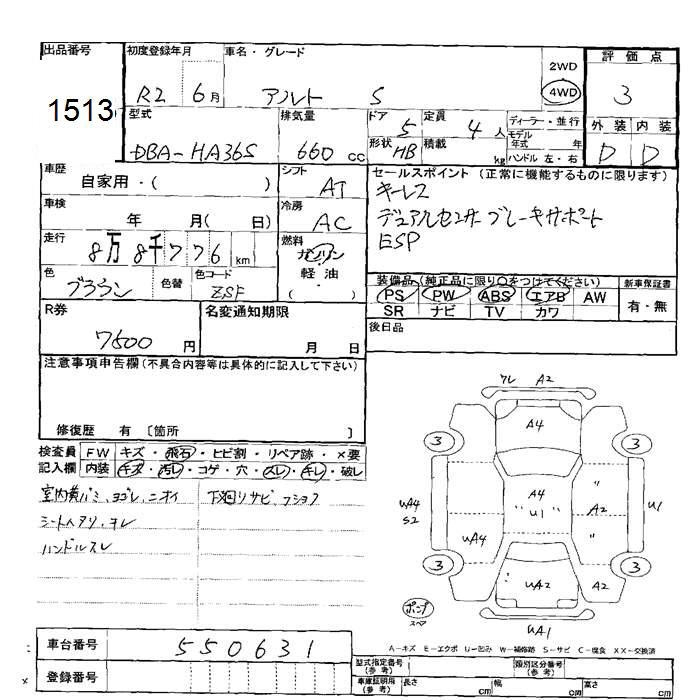 出品番号
1513
初度登録年月
R2 6月
車名・グレード
アルト S
2WD
4WD
評価点
3
型式
DBA-HA36S
排気量
660 cc
ドア
5
定員
4 人
形状
HB
積載
kg
ディーラー・並行
モデル
年式 年
ハンドル 左・右
外装 内装
D D
車歴
自家用・( )
シフト
AT
セールスポイント (正常に機能するものに限ります)
キーレス
デュアルセンサーブレーキサポート
ESP
車検
年 月( 日)
冷房
AC
走行
8万8千776 km
燃料
ガソリン
・
軽油
( )
色
ブラウン
色替
色コード
ZSF
装備品 (純正品に限り○をつけてください)
PS PW ABS エアB AW
SR ナビ TV カワ
新車保証書
有・無
R券
7600 円
名変通知期限
月 日
後日品
注意事項申告欄(不具合内容等は具体的に記入して下さい)
修復歴 有 〔箇所 〕
検査員
記入欄
FW キズ・飛石・ヒビ割・リペア跡・×要
内装 キズ・汚レ・コゲ・穴・スレ・キレ・破レ
室内黄バミ、ヨゴレ、ニオイ
シートヘタリ、ヨレ
ハンドルスレ
下廻リサビ、フショク
ワレ A2
A4
3 3
A4
U1
UA4
S2
UA4
"
A2
"
U1
3 3
UA2
A2
ポンプ
スペア
UA1
車台番号
550631
登録番号
A-キズ E-エクボ U-凹み W-補修跡 S-サビ C-腐食 XX-交換済
型式指定番号
(参考)
類別区分番号
(参考)
車庫証明用
(参考)
長さ cm
幅 cm
高さ cm